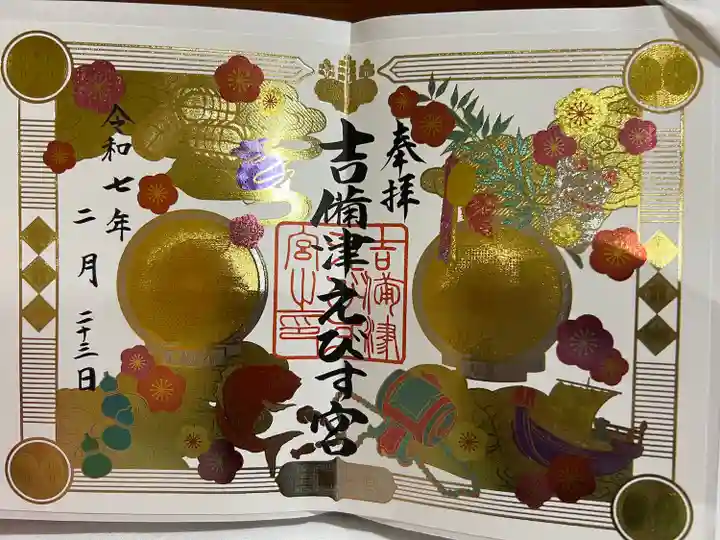 奉拝
吉備津えびす宮
吉備津
宮之印
令和七年
二月
二十三日